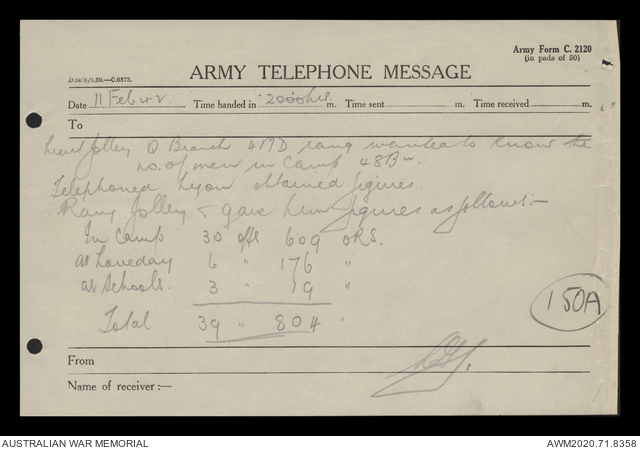 Army Form C. 2120
(in pads of 50)
D.3678/5.39.—C.6873.
ARMY TELEPHONE MESSAGE
Date 11 Feb 42 Time handed in 2000hrs. m. Time sent m. Time received m.
To
Lieut Jolley Q Branch 4 M D rang wanted to know the
no. of men in Camp 48Bn.
Telephoned Lyon obtained figures.
Rang Jolley & gave him figures as follows:—
In Camp 30 offs 609 ORS.
at Loveday 6 " 176 "
at Schools. 3 " 19 "
Total 39 " 804 "
150A
From
Name of receiver :—
AUSTRALIAN WAR MEMORIAL
AWM2020.71.8358